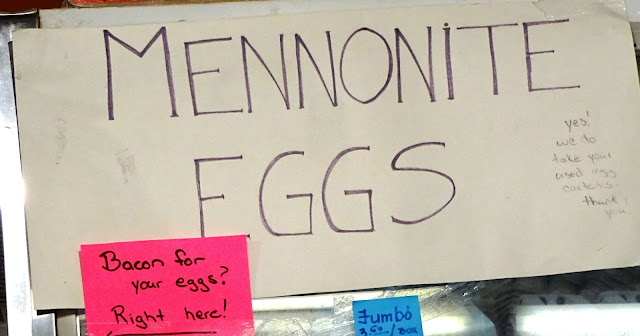 MENNONITE
EGGS
yes!
we do
take your
used egg
cartens.
thank
you
Bacon for
your eggs?
Right here!
Jumbo
3 50/Box